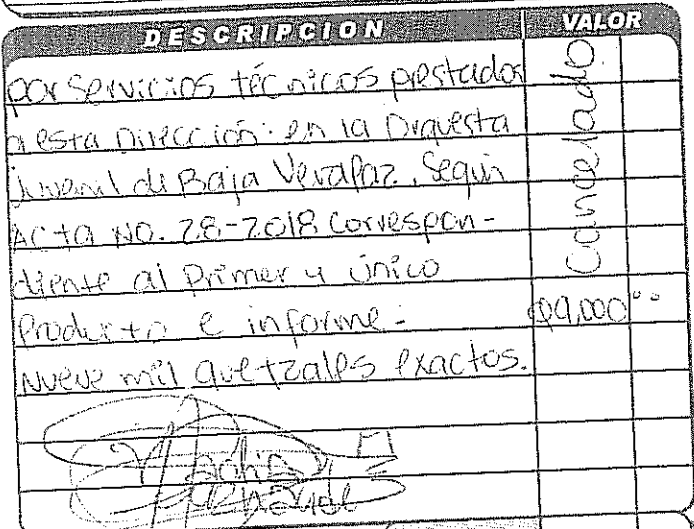 DESCRIPCION VALOR
por servicios técnicos prestados
a esta Dirección: en la Orquesta
juvenil de Baja Verapaz. Según
Acta NO. 28-2018 correspon-
diente al primer y único
Producto e informe.-
Q9,000.00
Nueve mil quetzales exactos.
Cancelado